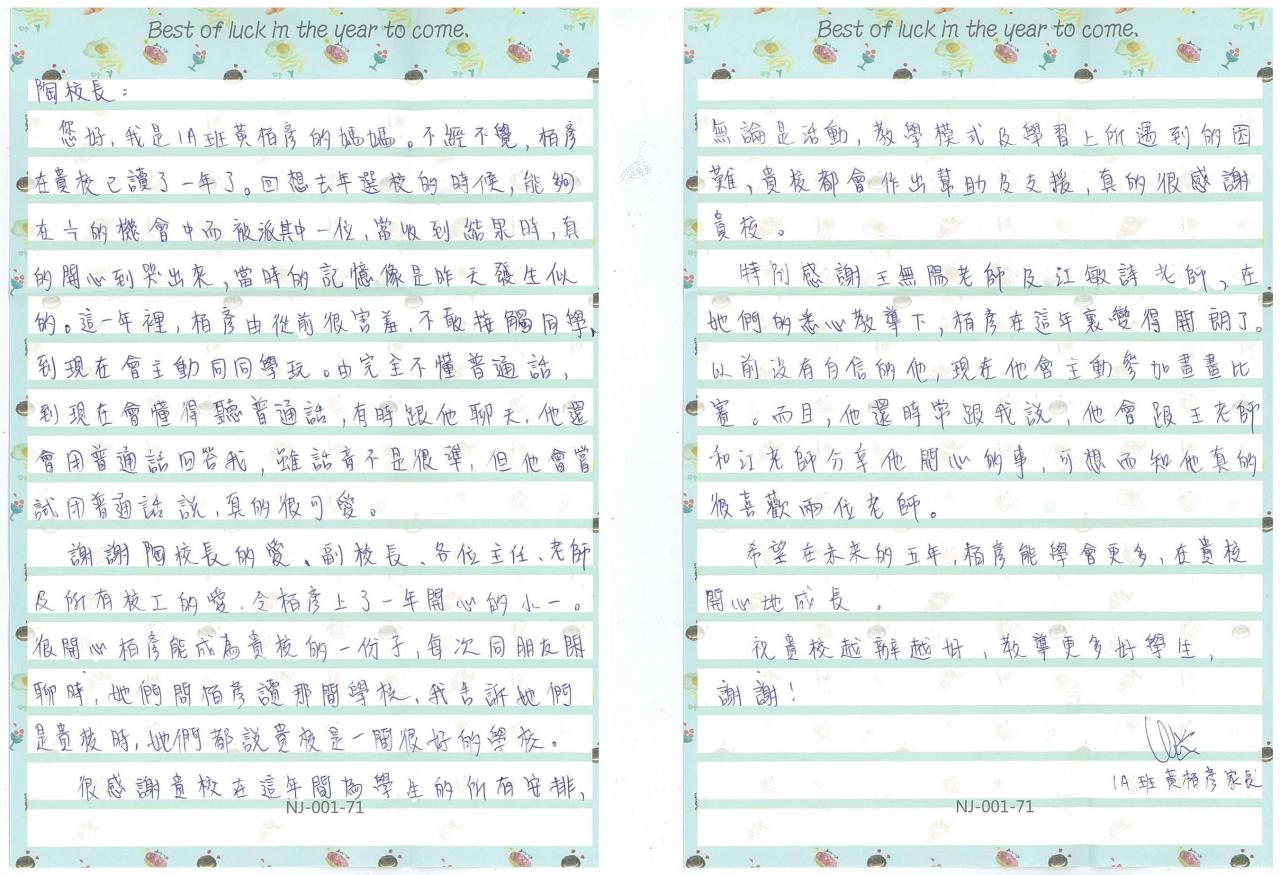 Best of luck in the year to come.
陶校長：
您好，我是1A班黃栢彥的媽媽。不經不覺，栢彥
在貴校已讀了一年了。回想去年選校的時候，能夠
在的機會中而被派其中一位，當收到結果時，真
的開心到哭出來，當時的記憶像是昨天發生似
的。這一年裡，栢彥由從前很害羞，不敢接觸同學，
到現在會主動同同學玩。由完全不懂普通話，
到現在會懂得聽普通話，有時跟他聊天，他還
會用普通話回答我，雖話音不是很準，但他會嘗
試用普通話說，真的很可愛。
謝謝陶校長的愛、副校長、各位主任、老師
及所有校工的愛，令栢彥上了一年開心的小一。
很開心栢彥能成為貴校的一份子，每次同朋友閒
聊時，她們問栢彥讀那間學校，我告訴她們
是貴校時，她們都說貴校是一間很好的學校。
很感謝貴校在這年間為學生的所有安排，
NJ-001-71
Best of luck in the year to come.
無論是活動，教學模式及學習上所遇到的困
難，貴校都會作出幫助及支援，真的很感謝
貴校。
特別感謝王無陽老師及江敏詩老師，在
她們的悉心教導下，栢彥在這年裏變得開朗了。
以前沒有自信的他，現在他會主動參加畫畫比
賽。而且，他還時常跟我說，他會跟王老師
和江老師分享他開心的事，可想而知他真的
很喜歡兩位老師。
希望在未來的五年，栢彥能學會更多，在貴校
開心地成長。
祝貴校越辦越好，教導更多好學生，
謝謝！
1A班黃栢彥家長
NJ-001-71